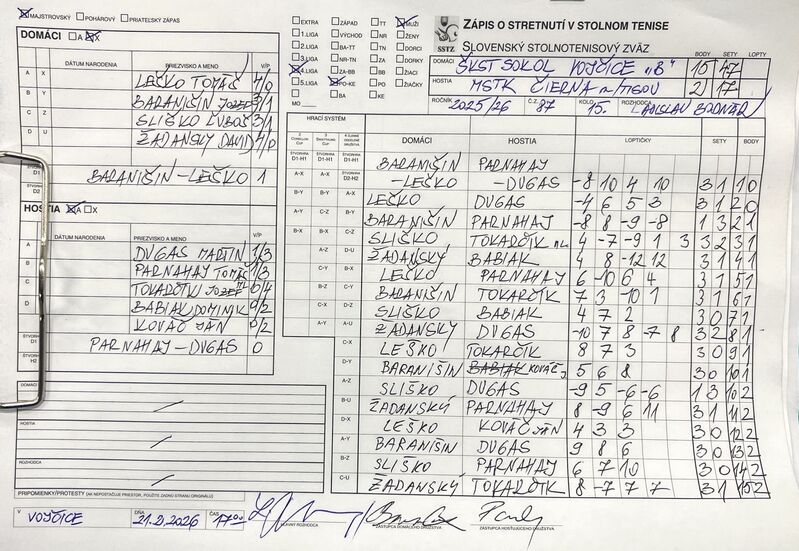 MAJSTROVSKÝ POHÁROVÝ PRIATEĽSKÝ ZÁPAS
DOMÁCI A X
DÁTUM NARODENIA PRIEZVISKO A MENO V/P
A X LEŠKO TOMÁŠ 4/0
B Y BARANIŠIN JOZEF 3/1
C Z SLIŠKO ĽUBOŠ 3/1
D U ŽADANSKÝ DAVID 4/0
ŠTVORHRA D1 D2 BARANIŠIN-LEŠKO 1
HOSTIA A X
DÁTUM NARODENIA PRIEZVISKO A MENO V/P
A DUGAS MARTIN 1/3
B PARNAHAJ TOMÁŠ 1/3
C TOKARČÍK JOZEF ML 0/4
D BABIAK DOMINIK 0/2
KOVÁČ JÁN 0/2
ŠTVORHRA D1 H2 PARNAHAJ-DUGAS 0
DOMÁCI
HOSTIA
ROZHODCA
PRIPOMIENKY/PROTESTY (AK NEPOSTAČUJE PRIESTOR, POUŽITE ZADNÚ STRANU ORIGINÁLU)
V VOJČICE DŇA 21.2.2026 ČAS 17:00
HLAVNÝ ROZHODCA ZÁSTUPCA DOMÁCEHO DRUŽSTVA ZÁSTUPCA HOSŤUJÚCEHO DRUŽSTVA
EXTRA ZÁPAD TT MUŽI
1.LIGA VÝCHOD NR ŽENY
2.LIGA BA-TT TN DORCI
3.LIGA NR-TN ZA DORKY
4.LIGA ZA-BB BB ŽIACI
5.LIGA PO-KE PO ŽIAČKY
MO BA KE
SSTZ
ZÁPIS O STRETNUTÍ V STOLNOM TENISE
SLOVENSKÝ STOLNOTENISOVÝ ZVÄZ
BODY SETY LOPTY
DOMÁCI ŠKST SOKOL VOJČICE "B" 15 47
HOSTIA MSTK ČIERNA n/TISOU 2 17
ROČNÍK 2025/26 Č.Z. 87 KOLO 15. ROZHODCA LADISLAV BODNÁR
HRACÍ SYSTÉM
DOMÁCI HOSTIA LOPTIČKY SETY BODY
BARANIŠIN PARNAHAJ
-LEŠKO -DUGAS -8 10 4 10 3 1 1 0
LEŠKO DUGAS -4 6 5 3 3 1 2 0
BARANIŠIN PARNAHAJ -8 8 -9 -8 1 3 2 1
SLIŠKO TOKARČÍK ML. 4 -7 -9 1 3 3 2 3 1
ŽADANSKÝ BABIAK 4 8 -12 12 3 1 4 1
LEŠKO PARNAHAJ 6 -10 6 4 3 1 5 1
BARANIŠIN TOKARČÍK 7 3 -10 1 3 1 6 1
SLIŠKO BABIAK 4 7 2 3 0 7 1
ŽADANSKÝ DUGAS -10 7 8 -7 8 3 2 8 1
LEŠKO TOKARČÍK 8 7 3 3 0 9 1
BARANIŠIN BABIAK KOVÁČ J 5 6 8 3 0 10 1
SLIŠKO DUGAS -9 5 -6 -6 1 3 10 2
ŽADANSKÝ PARNAHAJ 8 -9 6 11 3 1 11 2
LEŠKO KOVÁČ JÁN 4 3 3 3 0 12 2
BARANIŠIN DUGAS 9 8 6 3 0 13 2
SLIŠKO PARNAHAJ 6 7 10 3 0 14 2
ŽADANSKÝ TOKARČÍK -8 7 7 7 3 1 15 2